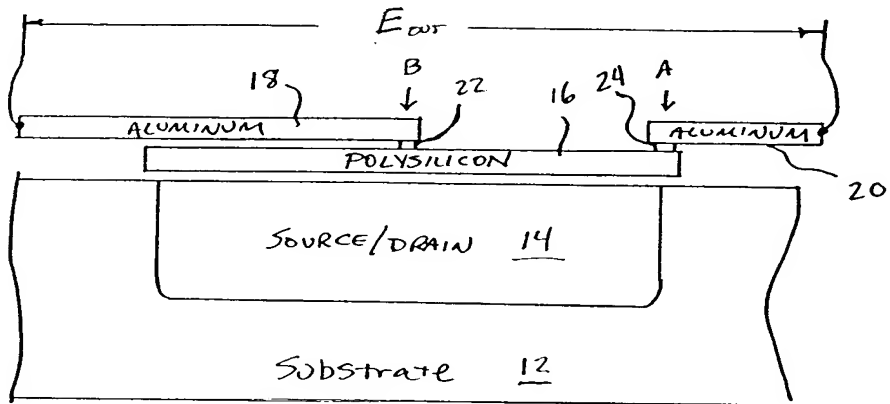 E OUT
B
A
18
22
16
24
ALUMINUM
ALUMINUM
POLYSILICON
20
SOURCE/DRAIN 14
Substrate 12